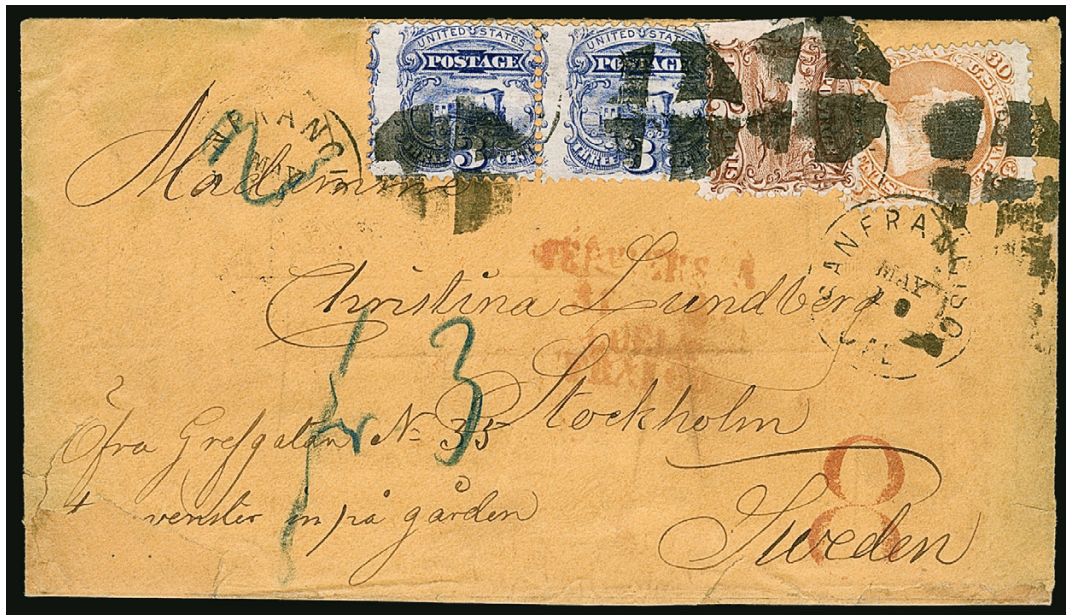 UNITED STATES
POSTAGE
THREE 3 CENTS
UNITED STATES
POSTAGE
THREE 3 CENTS
30
U.S. POSTAGE
SAN FRANCISCO
MAY
CAL
NFRANC
MAY
Madame
Christina Lundberg
Stockholm
Öfra Grefgatan No 35
venster in på gården
Sweden
3
8